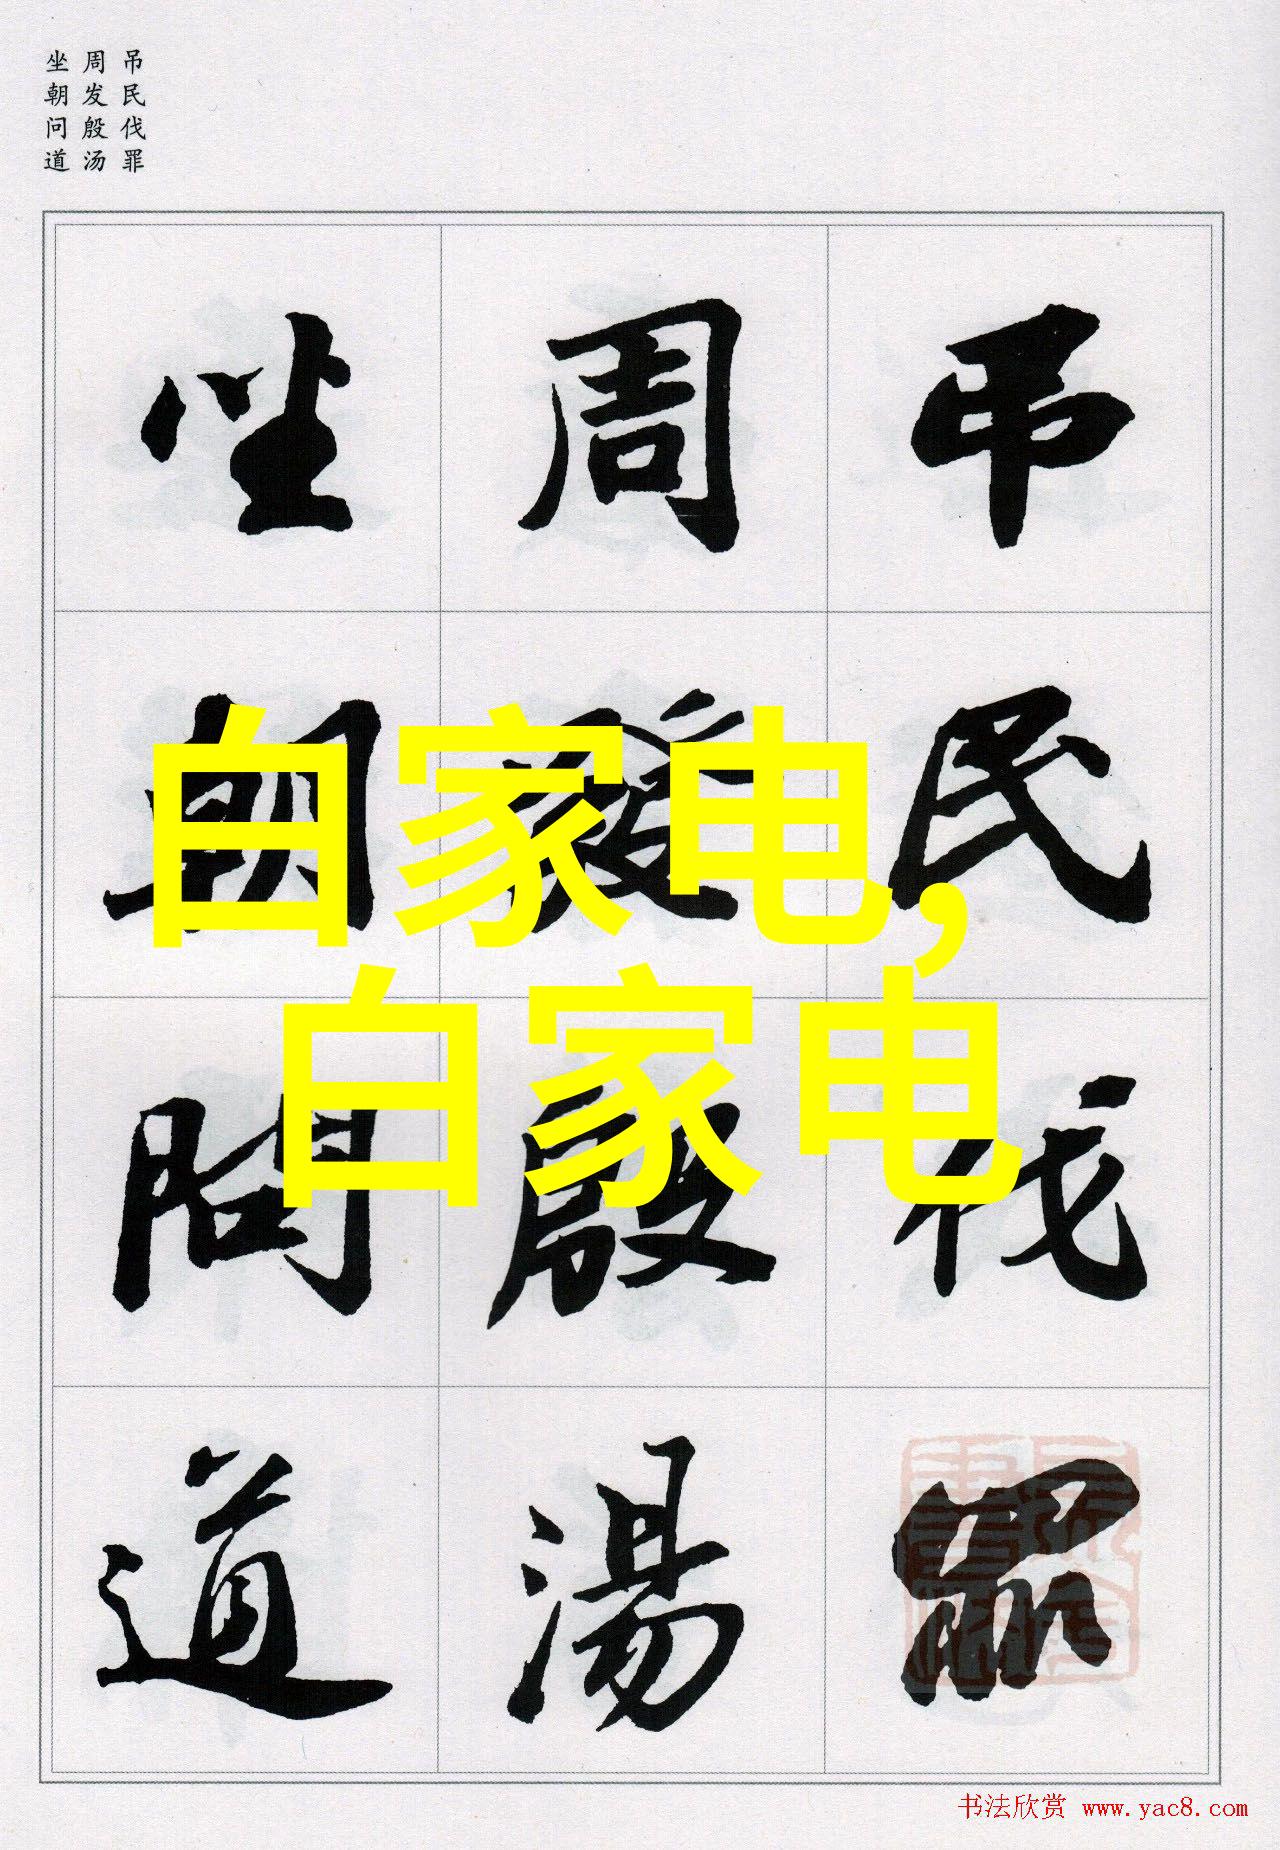 吊民伐罪
周发殷汤
坐朝问道
吊民伐罪
周發殷湯
坐朝問道
白家电,
白家电
书法欣赏 www.yac8.com